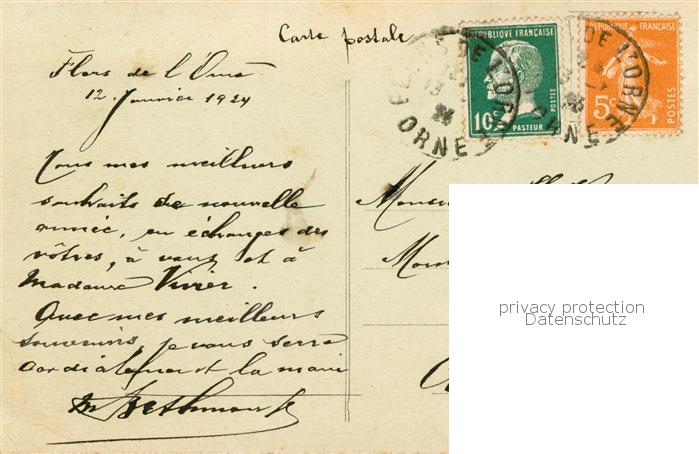 Carte postale
Flers de l'Orne
12 Janvier 1924
Tous mes meilleurs
souhaits de nouvelle
année, en échanges des
vôtres, à vous et à
Madame Vivier.
Avec mes meilleurs
souvenirs, je vous serre
cordialement la main
REPUBLIQUE FRANÇAISE
10c
POSTES
PASTEUR
REPUBLIQUE FRANÇAISE
5c
POSTES
DE L'ORNE
ORNE
DE L'ORNE
ORNE
privacy protection
Datenschutz